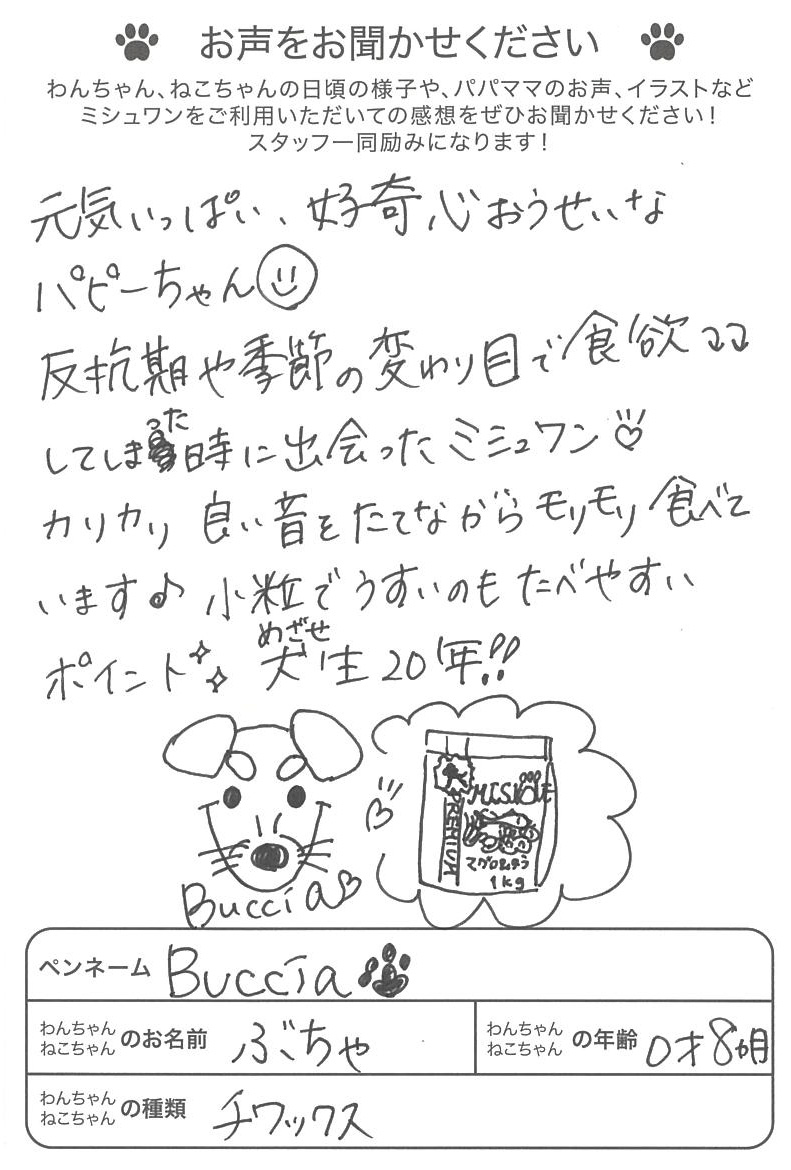 お声をお聞かせください
わんちゃん、ねこちゃんの日頃の様子や、パパママのお声、イラストなど
ミシュワンをご利用いただいての感想をぜひお聞かせください!
スタッフ一同励みになります!
元気いっぱい、好奇心おうせいな
パピーちゃん
反抗期や季節の変わり目で食欲ココ
してしまった時に出会ったミシュワン♡
カリカリ良い音をたてながらモリモリ食べて
います♪ 小粒でうすいのもたべやすい
ポイント めざせ犬生20年!!
Buccia♡
PREMIUM
マグロ
1kg
ペンネーム Buccia
わんちゃん ねこちゃん のお名前 ぶちゃ
わんちゃん ねこちゃん の年齢 0才8ヵ月
わんちゃん ねこちゃん の種類 チワックス